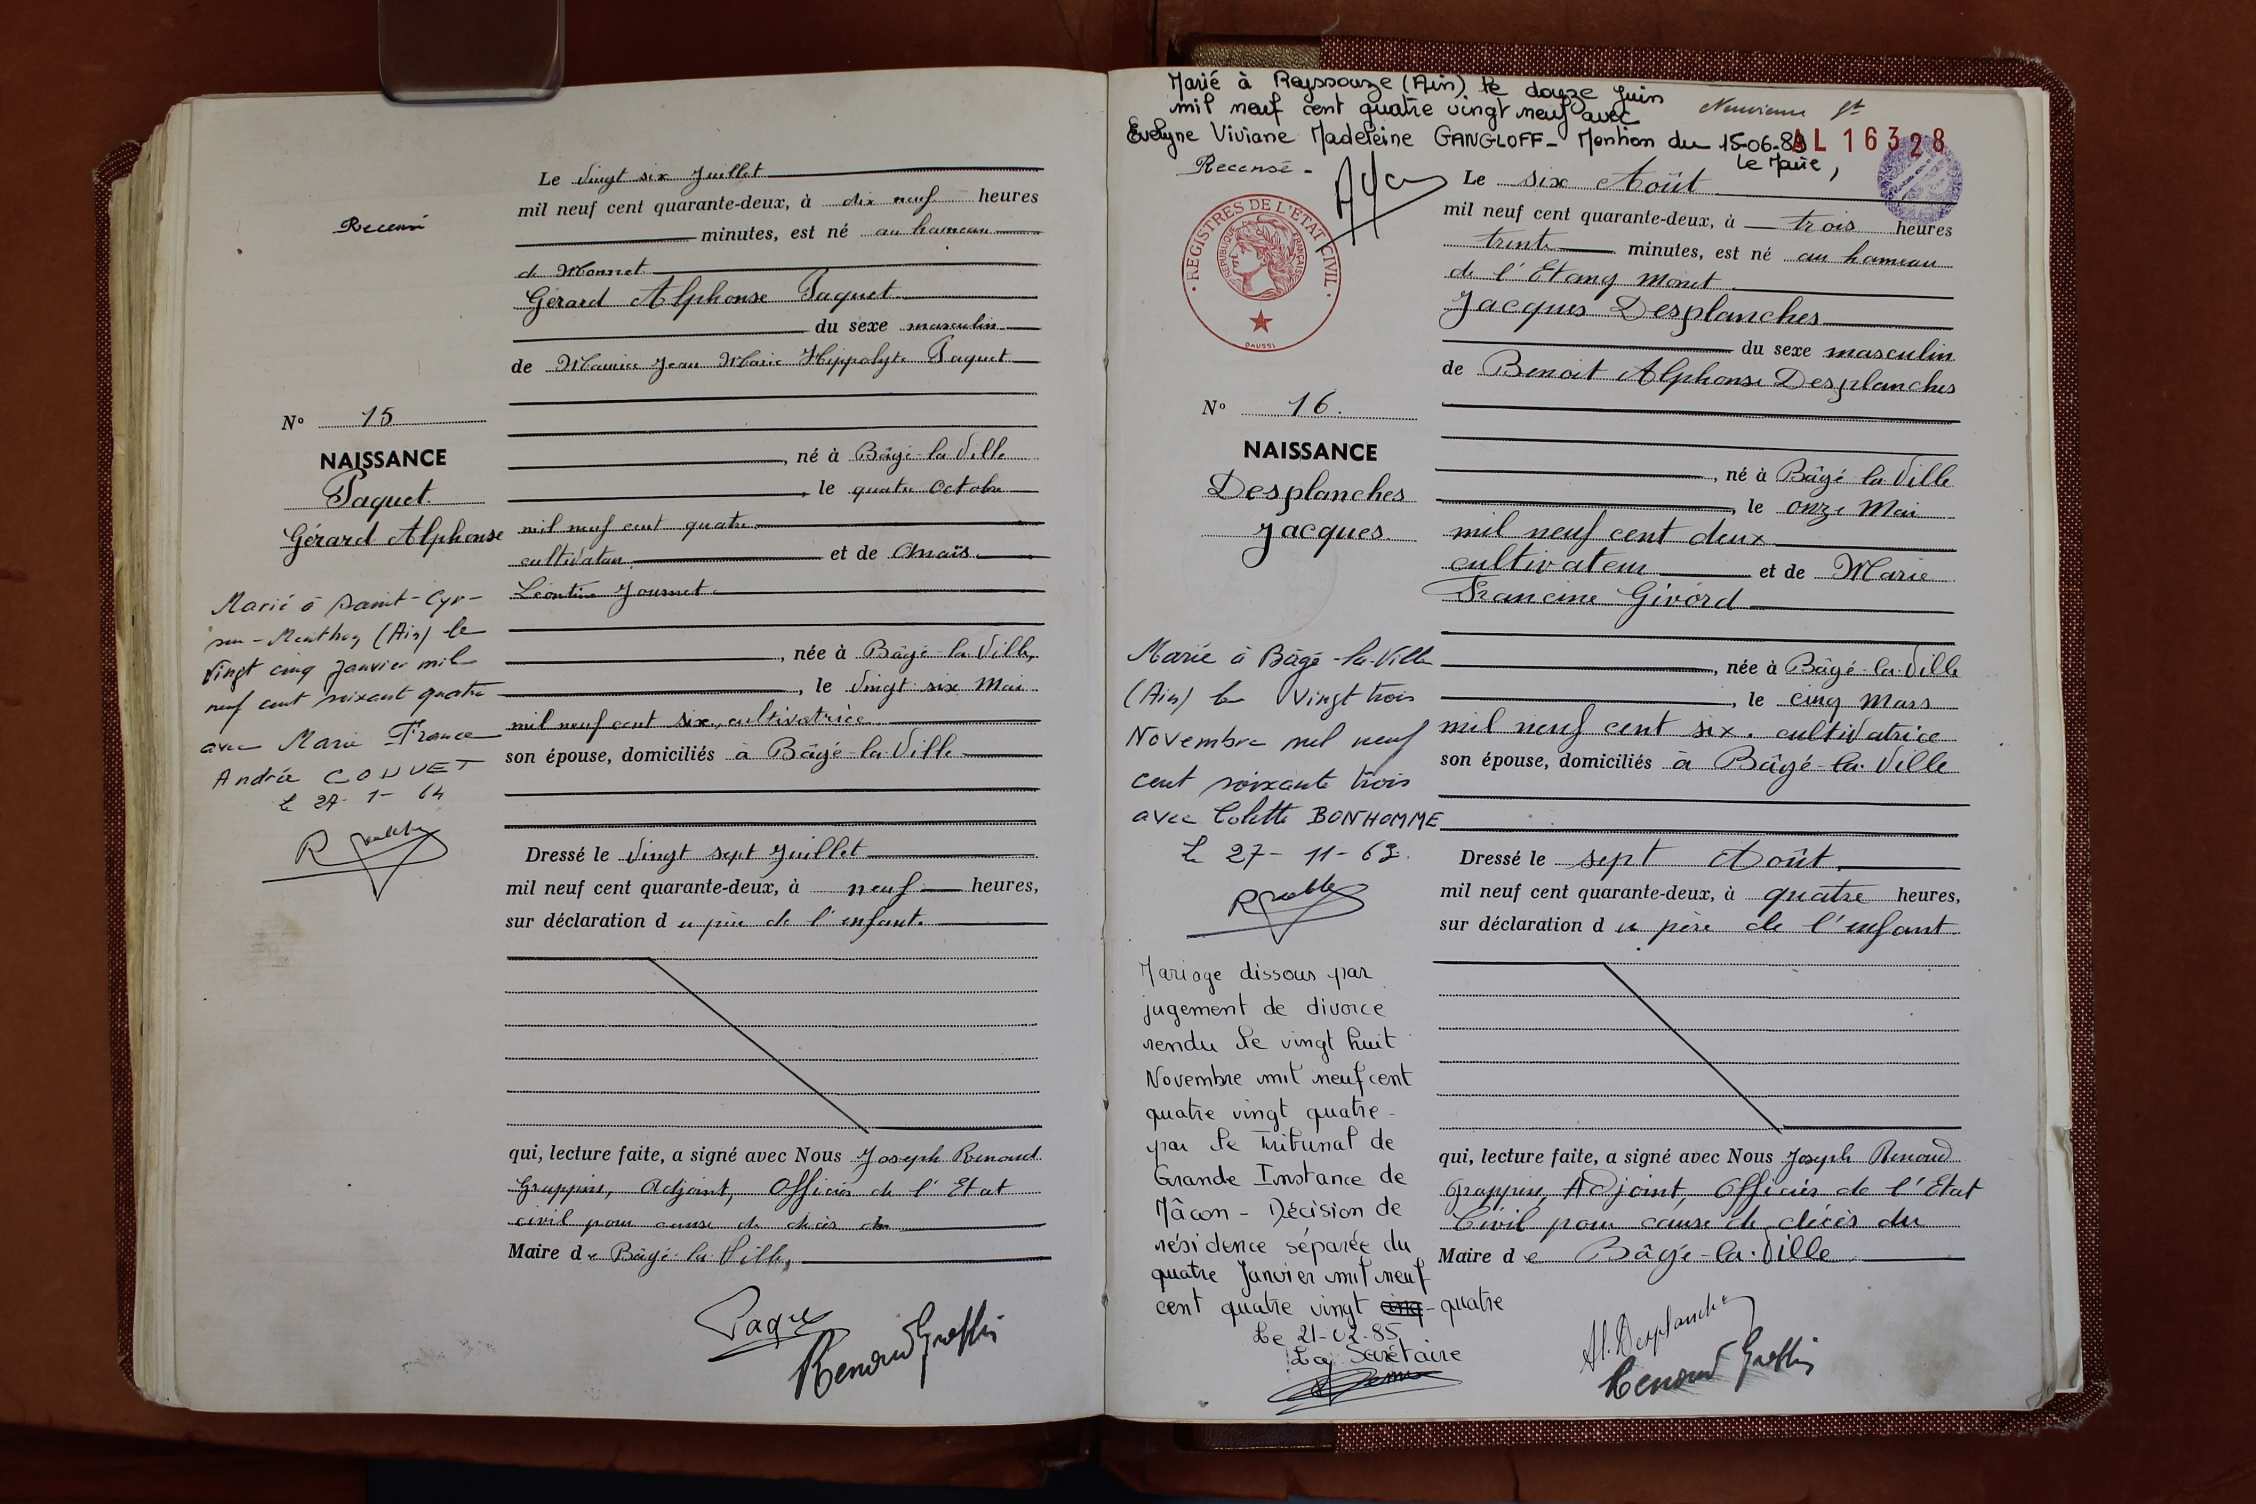 Recensé
Le vingt six Juillet
mil neuf cent quarante-deux, à dix neuf heures
minutes, est né au hameau
de Monnet
Gérard Alphonse Paquet
du sexe masculin
de Maurice Jean Marie Hippolyte Paquet
né à Bâgé-la-Ville
, le quatre Octobre
mil neuf cent quatre
cultivateur et de Anaïs
Léontine Journet
, née à Bâgé-la-Ville,
, le vingt six Mai
mil neuf cent six, cultivatrice
son épouse, domiciliés à Bâgé-la-Ville
Dressé le vingt sept Juillet
mil neuf cent quarante-deux, à neuf heures,
sur déclaration du père de l'enfant.
qui, lecture faite, a signé avec Nous Joseph Renoud
Grappin, Adjoint, Officier de l'Etat
civil pour cause de décès du
Maire de Bâgé-la-Ville,
Paquet
Renoud Grappin
No 15
NAISSANCE
Paquet
Gérard Alphonse
Marié à Saint-Cyr-
sur-Menthon (Ain) le
vingt cinq Janvier mil
neuf cent soixante quatre
avec Marie France
Andrée COUVET
le 27-1-64
Marié à Reyssouze (Ain) le douze Juin
mil neuf cent quatre vingt neuf avec
Evelyne Viviane Madeleine GANGLOFF - Mention du 15-06-89
Le Maire,
AL 16328
Recensé -
REGISTRES DE L'ETAT CIVIL
REPUBLIQUE FRANÇAISE
DAUSSI
No 16.
NAISSANCE
Desplanches
Jacques
Marié à Bâgé-la-Ville
(Ain) le Vingt trois
Novembre mil neuf
cent soixante trois
avec Colette BONHOMME
le 27-11-63.
Mariage dissous par
jugement de divorce
rendu le vingt huit
Novembre mil neuf cent
quatre vingt quatre -
par le Tribunal de
Grande Instance de
Mâcon - Décision de
résidence séparée du
quatre Janvier mil neuf
cent quatre vingt cinq - quatre
Le 21-02-85
La Secrétaire
Le six Août
mil neuf cent quarante-deux, à trois heures
trente minutes, est né au hameau
de l'Etang Monet
Jacques Desplanches
du sexe masculin
de Benoit Alphonse Desplanches
, né à Bâgé-la-Ville
, le onze Mai
mil neuf cent deux
cultivateur et de Marie
Francine Givord
, née à Bâgé-la-Ville
, le cinq Mars
mil neuf cent six, cultivatrice
son épouse, domiciliés à Bâgé-la-Ville
Dressé le sept Août
mil neuf cent quarante-deux, à quatre heures,
sur déclaration du père de l'enfant.
qui, lecture faite, a signé avec Nous Joseph Renoud
Grappin, Adjoint, Officier de l'Etat
Civil pour cause de décès du
Maire de Bâgé-la-Ville
Al. Desplanches
Renoud Grappin